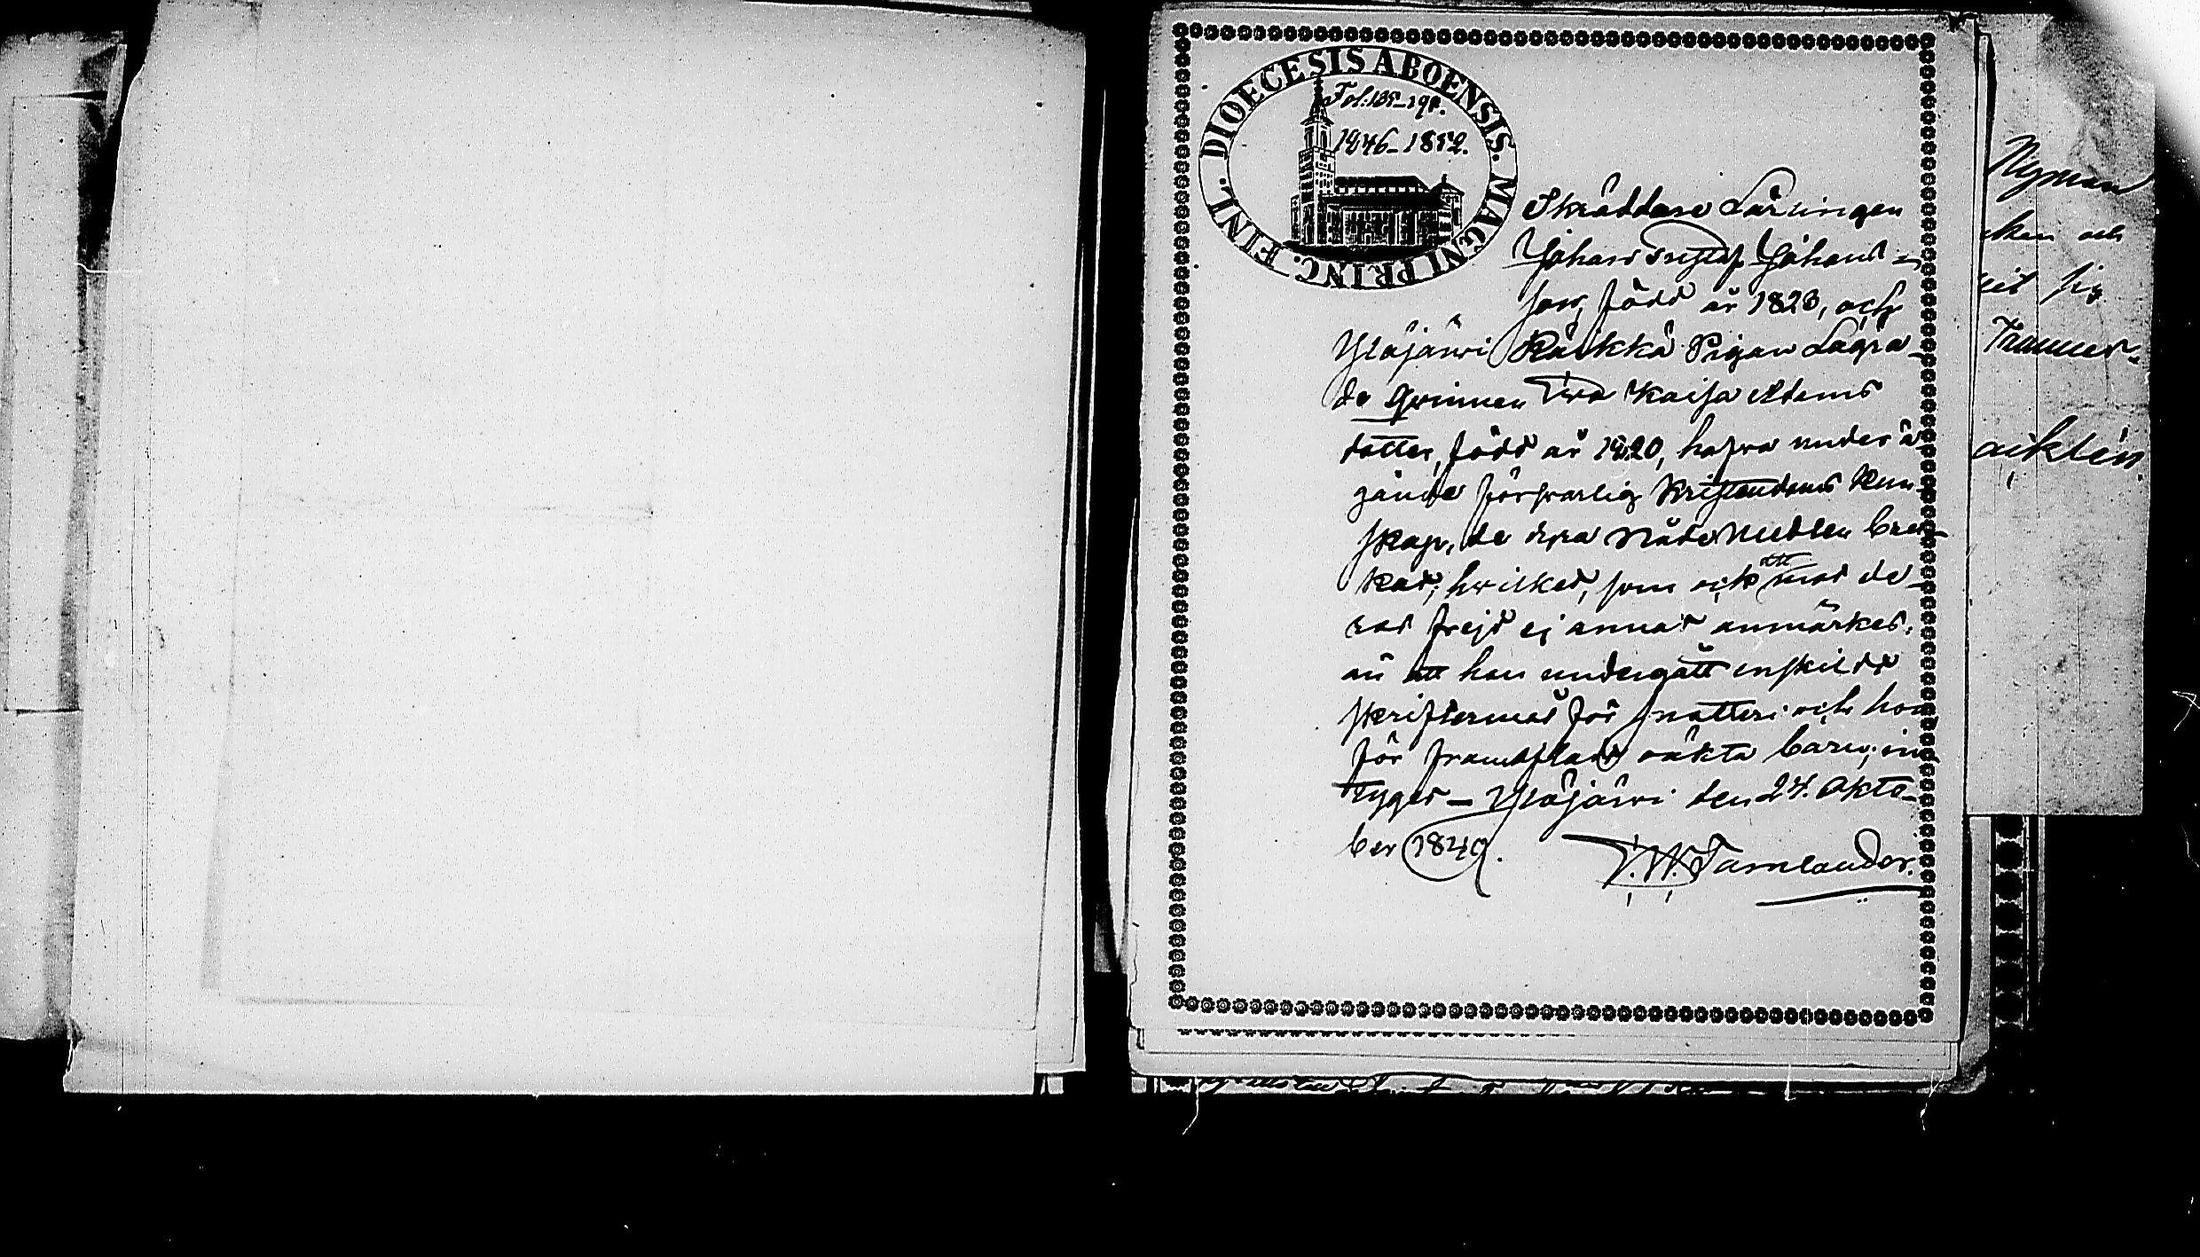 DIOECESIS ABOENSIS. MAGNI PRINC. FINL.
Fol: 185-198.
1846-1852.
Skräddare Lärlingen
Johan Gustaf Johans-
son, född år 1823, och
Ylöjärvi Räikkä Pigan Lägra-
de Qvinnan Eva Kaisa Adams
dotter, född år 1820, hafva under å
gående försvarlig Kristendoms Kun-
skap, de äga Nådemedlen bru-
kas; hvilket, som ock att mot de-
ras frejd ej annat anmärkes,
än att han undergått enskildt
skriftermål för snatteri och hon
för framfödt oäkta barn; in-
tyges - Ylöjärvi den 27. Okto-
ber 1849.
Nyman
och
Tammer-